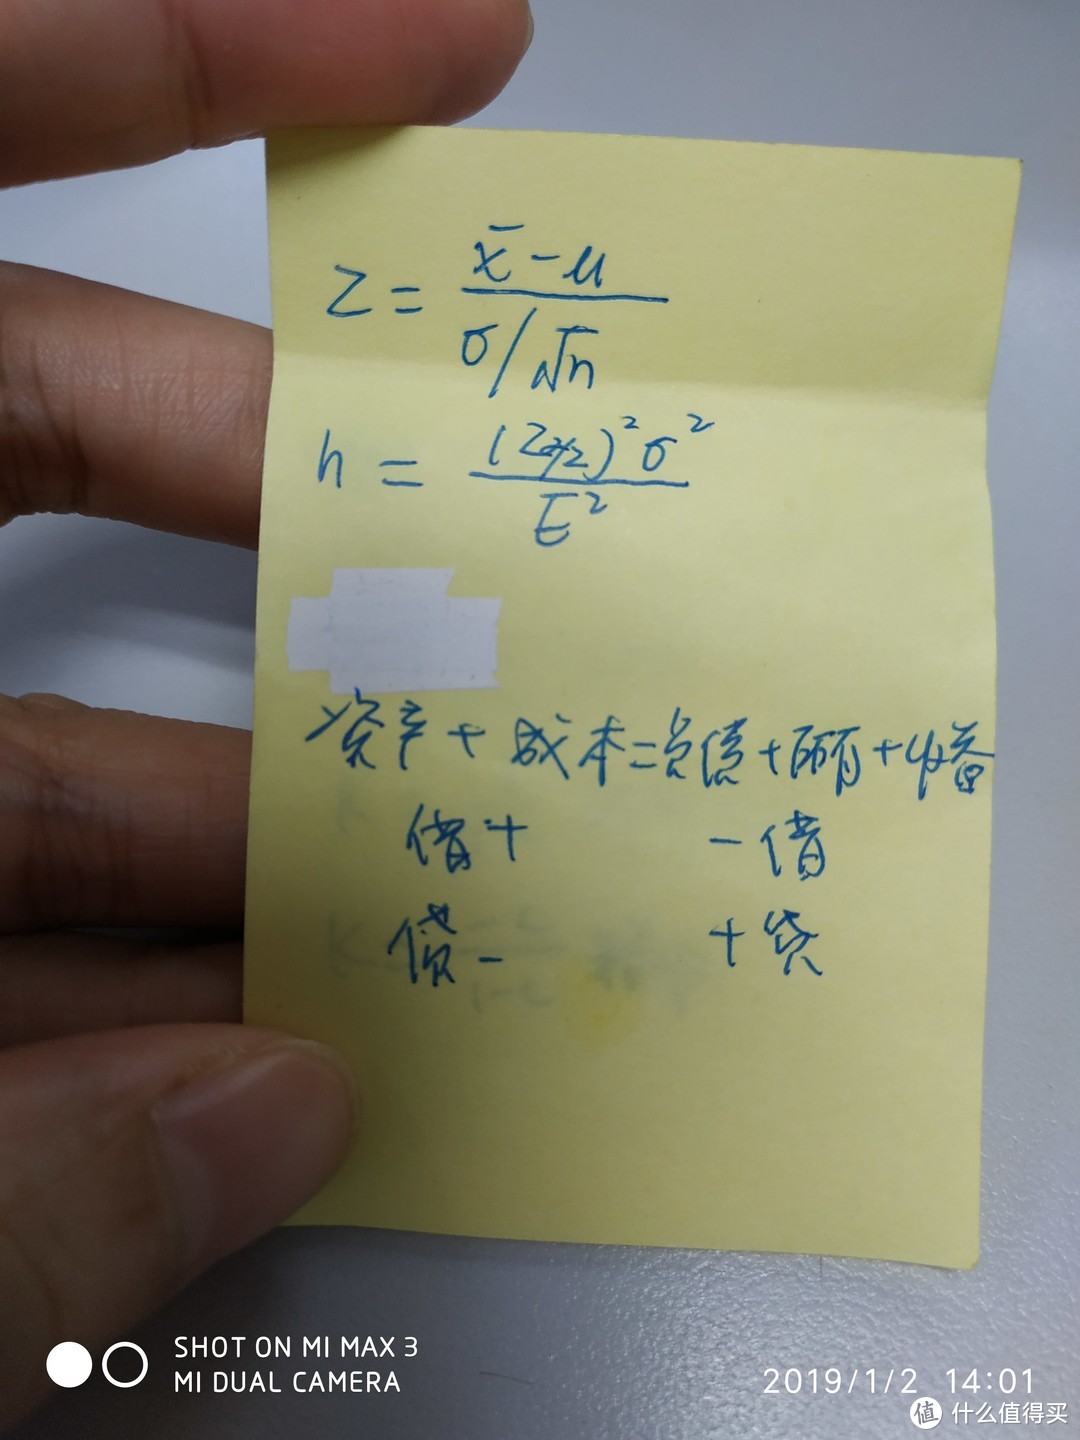 Z = (x̄ - μ) / (σ/√n)
n = (Zα/2)²σ² / E²
资产 + 成本 = 负债 + 所有 + 收益
借 + - 借
贷 - + 贷
SHOT ON MI MAX 3
MI DUAL CAMERA
2019/1/2 14:01
值 什么值得买